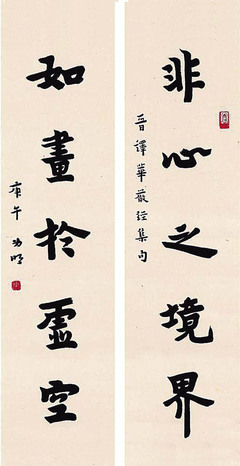 非心之境界
晋譯華嚴經集句
如畫於虛空
庚午